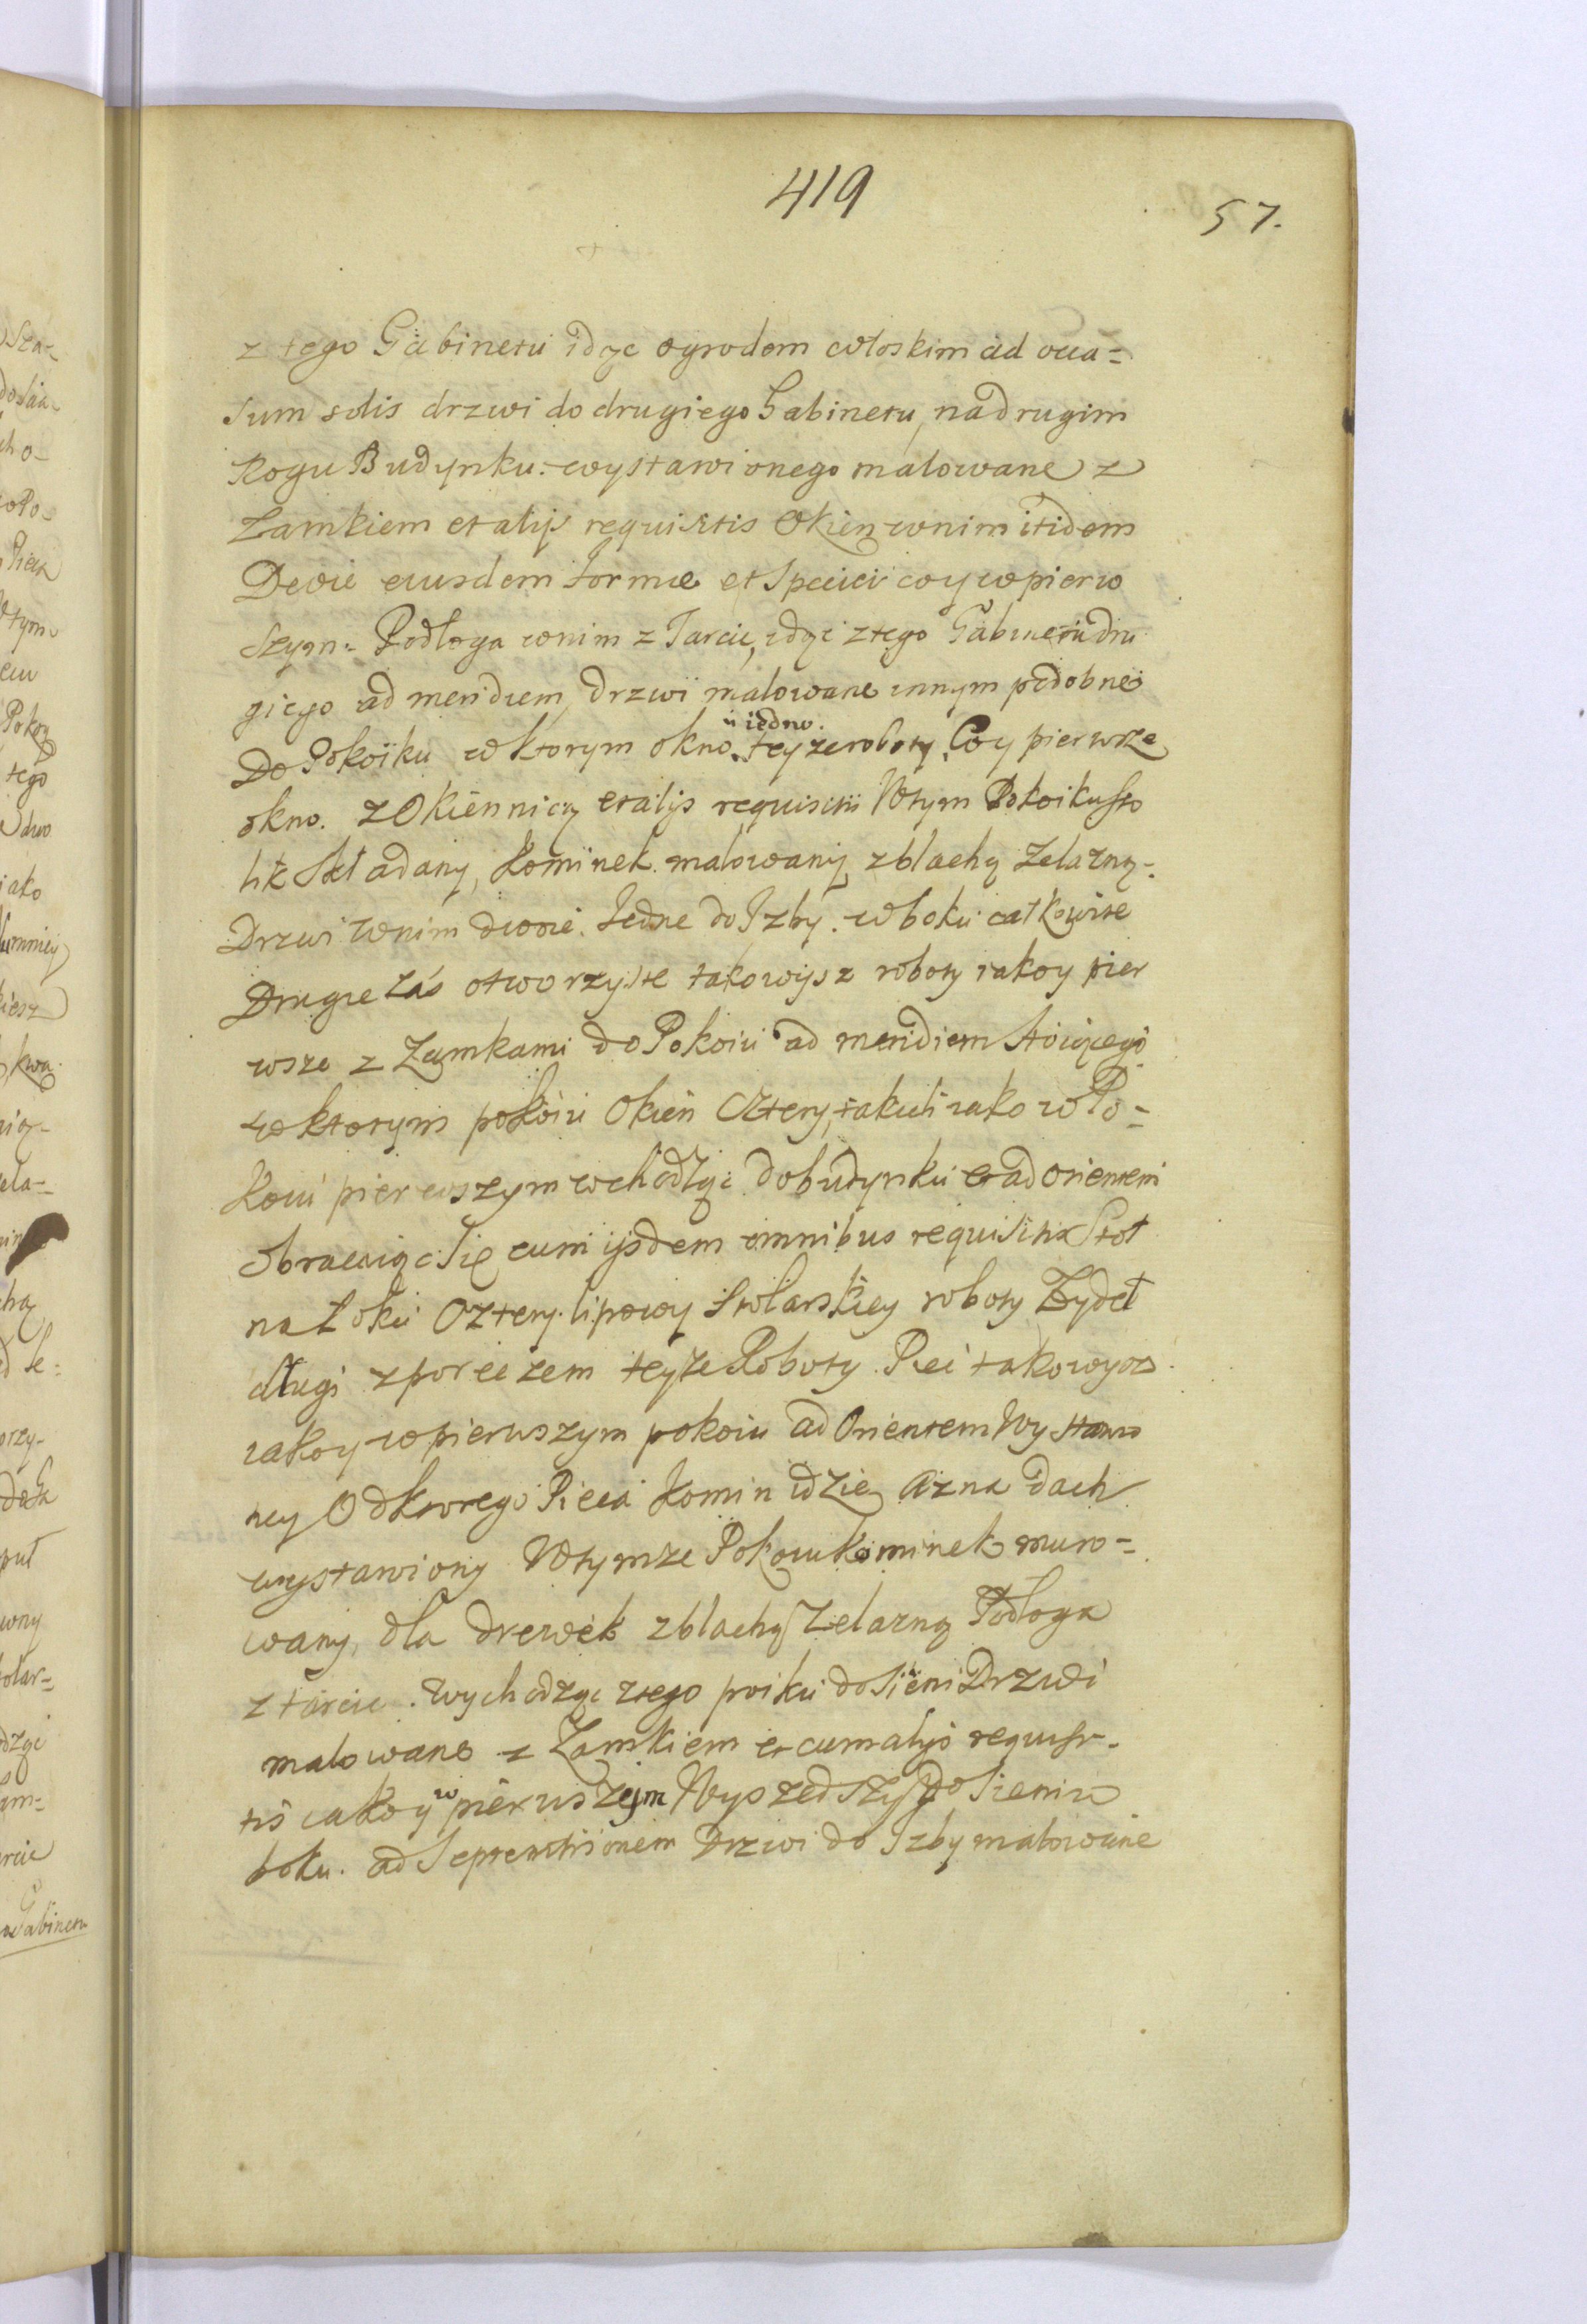 419
57.
z tego Gabinetu idąc ogrodem włoskim ad occa=
sum solis drzwi do drugiego Gabinetu, na drugim
Rogu Budynku. wystawionego malowane z
Zamkiem et alijs requisitis Okien wnim itidem
Dwie eiusdem Formae et Speciei co y wpierw
szym. Podłoga wnim z Tarcic, idąc ztego Gabinetu dru
giego ad meridiem, drzwi malowane innym podobne
Do Pokoiku wktorym okno iedno. teyże roboty Co y pierwsze
okno. z Okiennicą et alijs requisitis Wtym Pokoiku sto
lik składany, Kominek malowany, zblachą żelazną.
Drzwi wnim dwoie. Jedne do Izby. wboku całkowite
Drugie zaś otworzyste takowyjsz roboty iakoy pier
wsze z Zamkami do Pokoiu ad meridiem stoiącego
w ktorym pokoiu Okien cztery, takich iako w Po=
koiu pierwszym wchodząc do budynku et ad orientem
obracaiąc się cum ijsdem omnibus requisitis Stoł
na Łokci cztery lipowy stolarskiey roboty Zydel
długi zporeczem teyże Roboty. Piec takowyosz
iakoy wpierwszym pokoiu ad Orientem Wystawio
ny Odktorego Pieca Komin idzie aż na dach
wystawiony Wtymże Pokoiu kominek muro=
wany, dla drewek zblachą żelazną Podłoga
z tarcic. Wychodząc ztego poiku do Sieni Drzwi
malowane z Zamkiem et cum alijs requisi-
tis iakoy w pierwszym Wyszedszy do Sieni w
boku. ad Septemtrionem Drzwi do Izby malowane